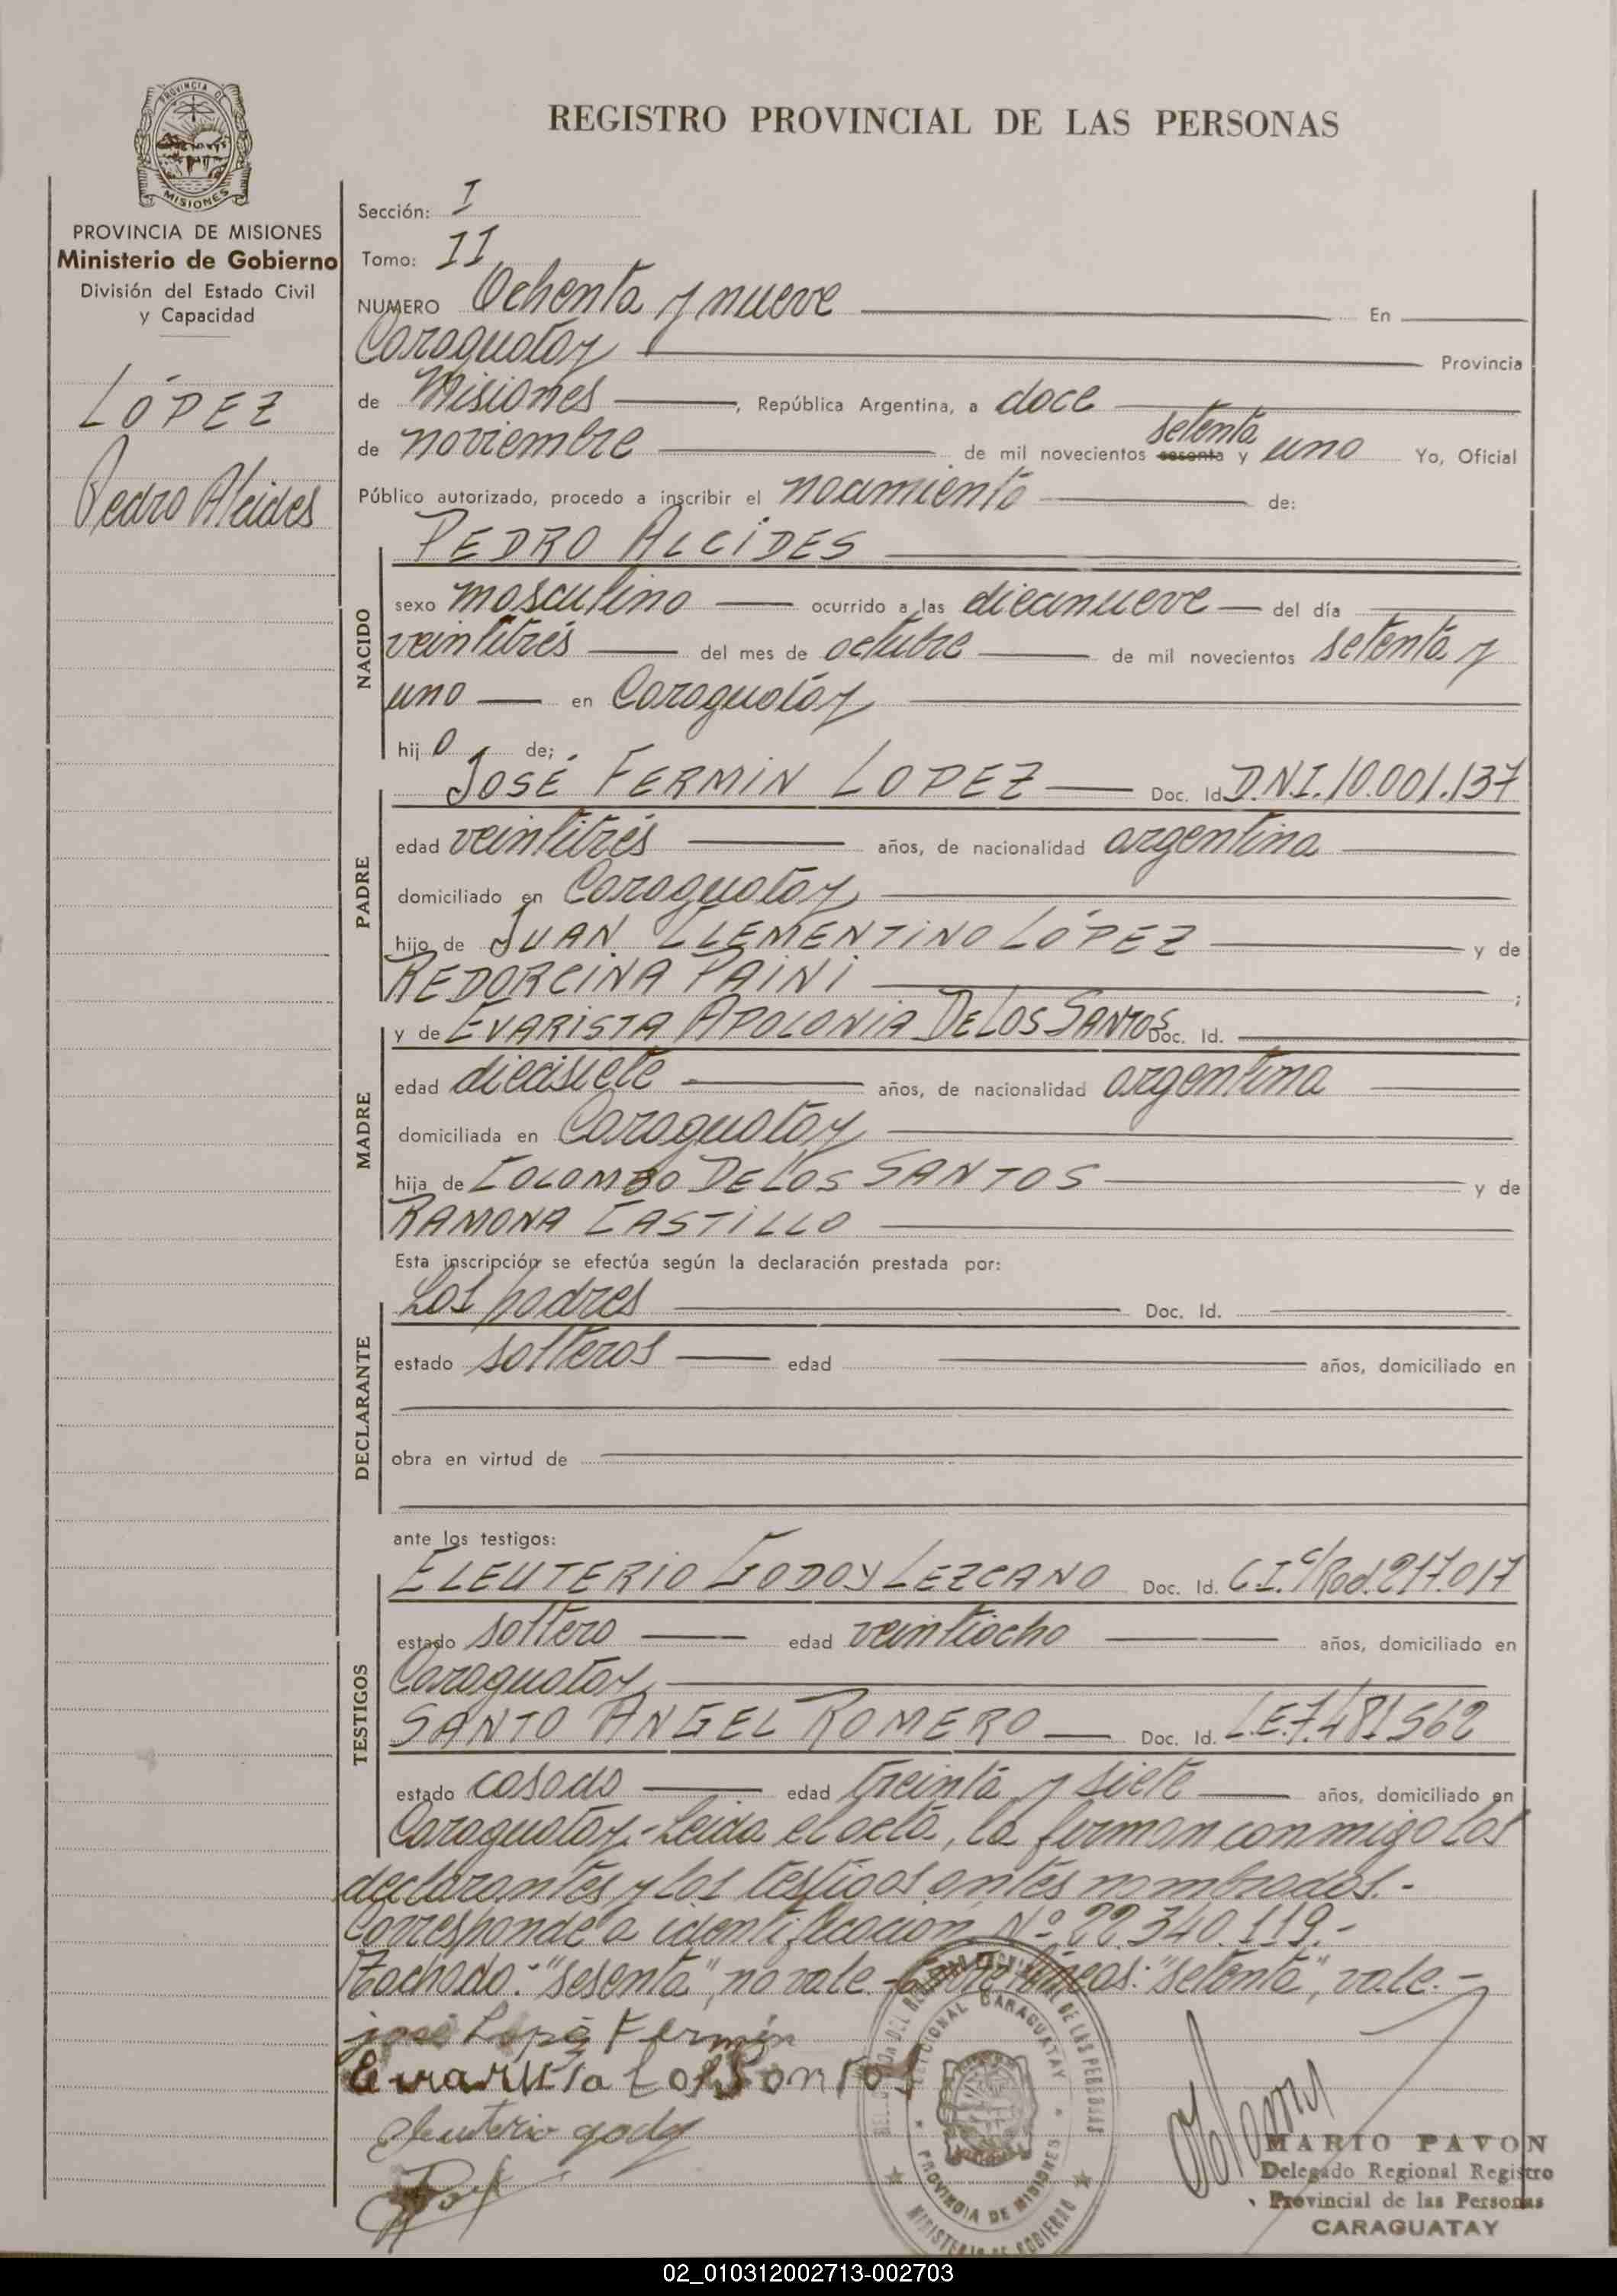 REGISTRO PROVINCIAL DE LAS PERSONAS
PROVINCIA DE MISIONES
Ministerio de Gobierno
División del Estado Civil
y Capacidad
LÓPEZ
Pedro Alcides
Sección: I
Tomo: II
NUMERO Ochenta y nueve En
Caraguatay Provincia
de Misiones, República Argentina, a doce
de noviembre de mil novecientos sesenta setenta y uno Yo, Oficial
Público autorizado, procedo a inscribir el nacimiento de:
NACIDO
PEDRO ALCIDES
sexo masculino ocurrido a las diecinueve del día
veintitrés del mes de octubre de mil novecientos setenta y
uno en Caraguatay
hijo de;
PADRE
JOSÉ FERMIN LOPEZ Doc. Id D.N.I. 10.001.137
edad veintitrés años, de nacionalidad argentina
domiciliado en Caraguatay
hijo de JUAN CLEMENTINO LÓPEZ y de
REDORCINA PAINI;
MADRE
y de EVARISTA APOLONIA DE LOS SANTOS Doc. Id.
edad diecisiete años, de nacionalidad argentina
domiciliada en Caraguatay
hija de COLOMBO DE LOS SANTOS y de
RAMONA CASTILLO
Esta inscripción se efectúa según la declaración prestada por:
DECLARANTE
Los padres Doc. Id.
estado solteros edad años, domiciliado en
obra en virtud de
ante los testigos:
TESTIGOS
ELEUTERIO GODOY LEZCANO Doc. Id. C.I. c/Rad. 217.017
estado soltero edad veintiocho años, domiciliado en
Caraguatay
SANTO ANGEL ROMERO Doc. Id. L.E. 7.481.562
estado casado edad treinta y siete años, domiciliado en
Caraguatay.- Leida el acta, la firman conmigo los
declarantes y los testigos antes nombrados.-
Corresponde a identificación Nº 22.340.119.-
Tachado: "sesenta", no vale.- Entre líneas: "setenta", vale.-
josé Lopé Fermín
Evarista Los Santos
Eleuterio godoy
SECCIONAL CARAGUATAY
PROVINCIA DE MISIONES
MINISTERIO DE GOBIERNO
MARIO PAVON
Delegado Regional Registro
Provincial de las Personas
CARAGUATAY
02_010312002713-002703